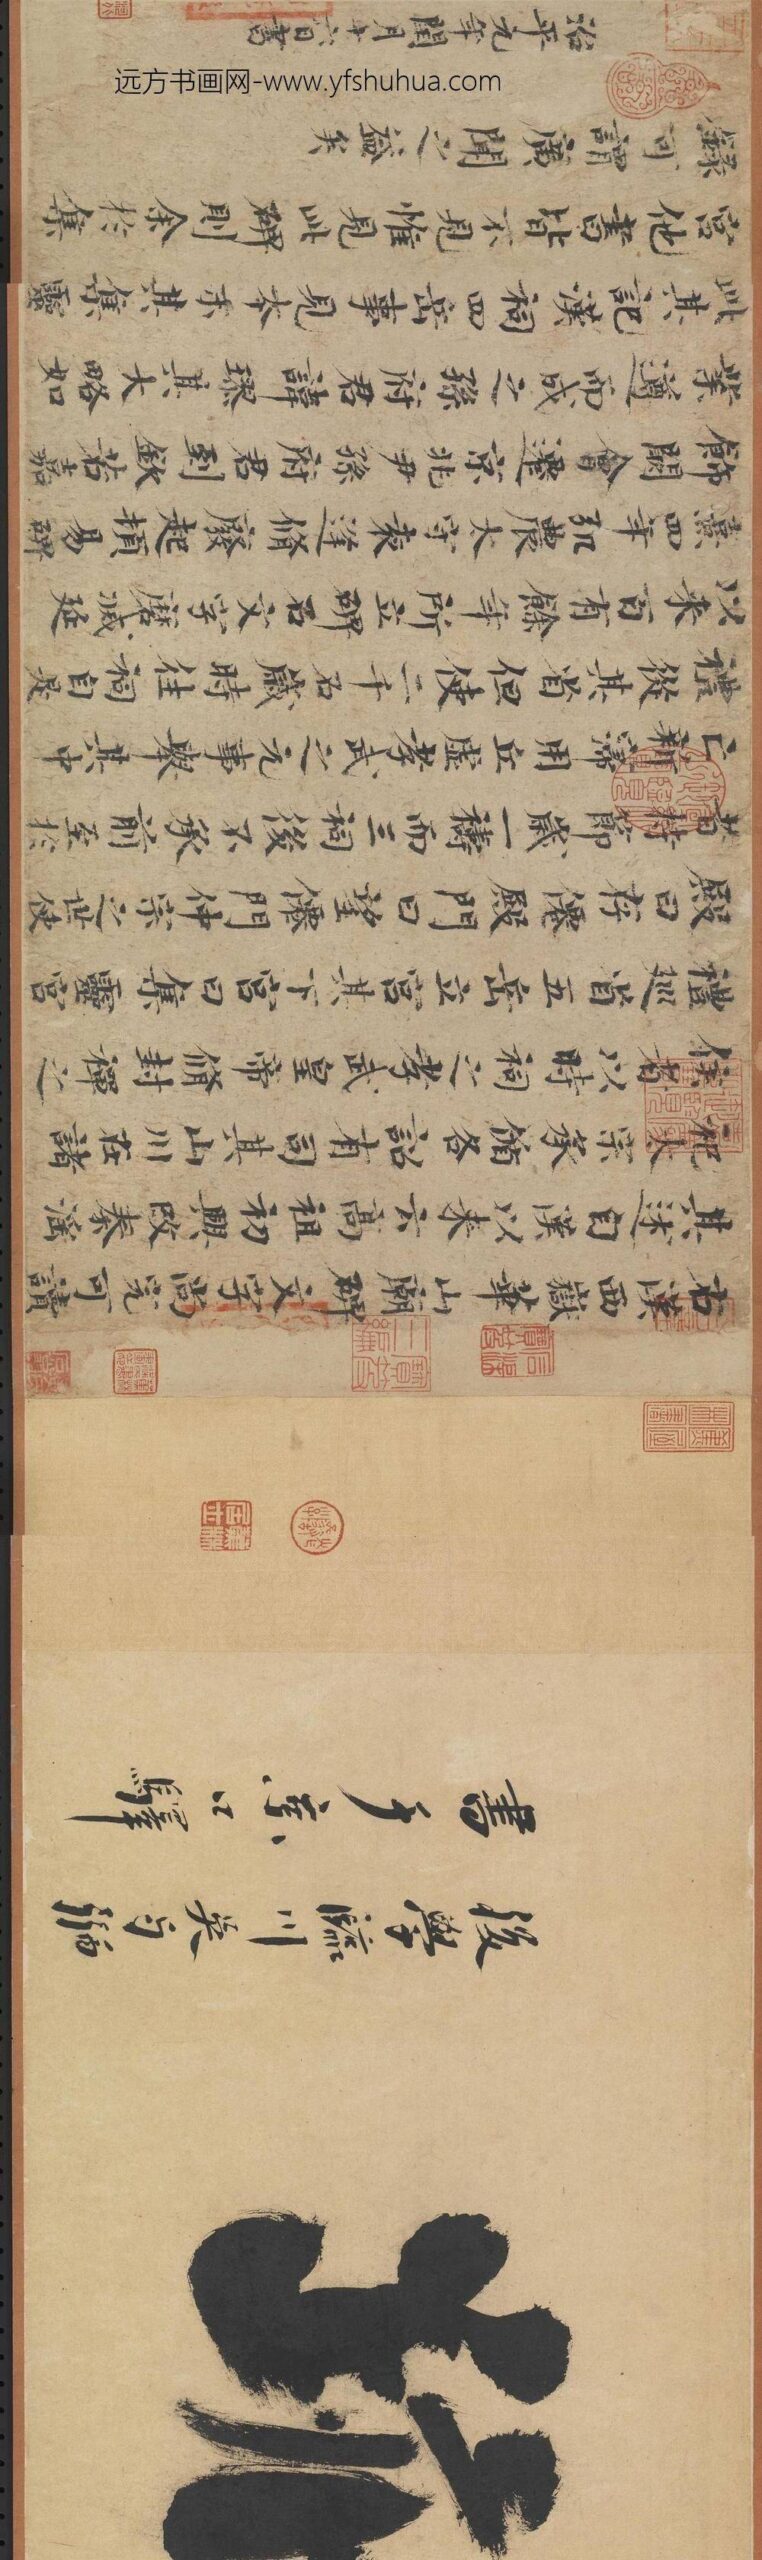 後學臨川吳与弼
書于京口驛
右漢西嶽華山廟碑文字尚完可讀
其述自漢以來云高祖初興改秦淫
祀太宗承循各詔有司其山川在諸
侯者以時祠之孝武皇帝脩封禪之
禮巡省五岳立宮其下宮曰集靈宮
殿曰存僊殿門曰望僊門仲宗之世使
者持節歲一禱而三祠後不承前至於
亡新寖用丘虛孝武之元事舉其中
禮從其省但使二千石歲時往祠自是
以來百有餘年所立碑石文字磨滅延
熹四年弘農太守袁逢脩廢起頓易碑
飾闕會遷京兆尹孫府君到欽若嘉
業遵而成之孫府君諱璆其大略如
此其記漢祠四岳事見本末其集靈
宮他書皆不見惟見此碑則余於集
錄可謂廣聞之益矣
治平元年閏月十六日書
远方书画网-www.yfshuhua.com